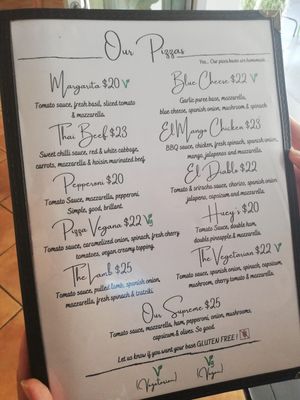 Our Pizzas
Yes... Our pizza bases are homemade...
Margarita $20
Tomato sauce, fresh basil, sliced tomato
& mozzarella.
Thai Beef $23
Sweet chilli sauce, red & white cabbage,
carrots, mazzarella & hoisin marinated beef
Pepperoni $20
Tomato Sauce, mazzarella, pepperoni.
Simple, good, brilliant.
Pizza Vegana $22
Tomato sauce, caramelized onion, spinach, fresh cherry
tomatoes, vegan creamy topping.
The Lamb $25
Tomato sauce, pulled lamb, spanish onion,
mazzarella, fresh spinach & tzatziki.
Blue Cheese $22
Garlic puree base, mazzarella,
blue cheese, spanish onion, mushroom & spinach
El Mango Chicken $23
BBQ sauce, chicken, fresh spinach, spanish onion,
mango, jalapenos and mazzarella.
El Diablo $22
Tomato & sriracha sauce, chorizo, spanish onion,
jalapeno, capsicum and mazzarella.
Huey's $20
Tomato Sauce, double ham,
double pineapple & mazzarella.
The Vegetarian $22
Tomato sauce, spanish onion, spinach, capsicum,
mushroom, cherry tomato & mazzarella.
Our Supreme $25
Tomato sauce, mazzarella, ham, pepperoni, onion, mushrooms,
capsicum & olives. So good.
Let us know if you want your base GLUTEN FREE!
(Vegetarian)
(Vegan)